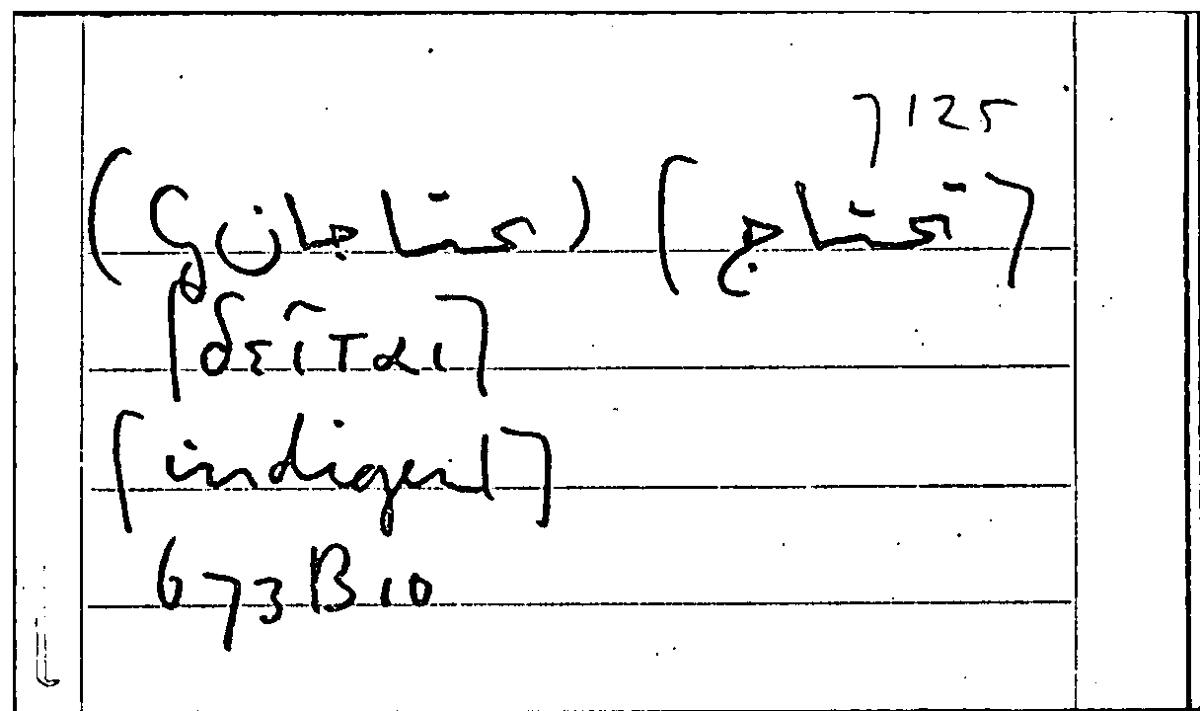 7125
[تحتاج]
[δεῖται]
[indigent]
673B10